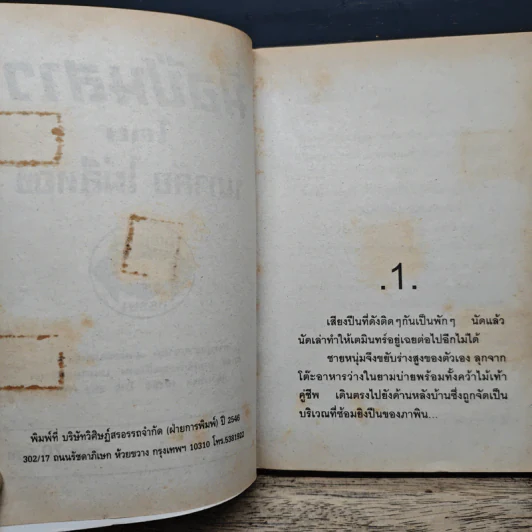 พิมพ์ที่ บริษัทวิศิษฎ์สรอรรถจำกัด (ฝ่ายการพิมพ์) ปี 2546
302/17 ถนนรัชดาภิเษก ห้วยขวาง กรุงเทพฯ 10310 โทร.5381922
.1.
เสียงปืนที่ดังติดๆกันเป็นพักๆ นัดแล้ว
นัดเล่าทำให้เตมินทร์อยู่เฉยต่อไปอีกไม่ได้
ชายหนุ่มจึงขยับร่างสูงของตัวเอง ลุกจาก
โต๊ะอาหารว่างในยามบ่ายพร้อมทั้งคว้าไม้เท้า
คู่ชีพ เดินตรงไปยังด้านหลังบ้านซึ่งถูกจัดเป็น
บริเวณที่ซ้อมยิงปืนของภาพิน...